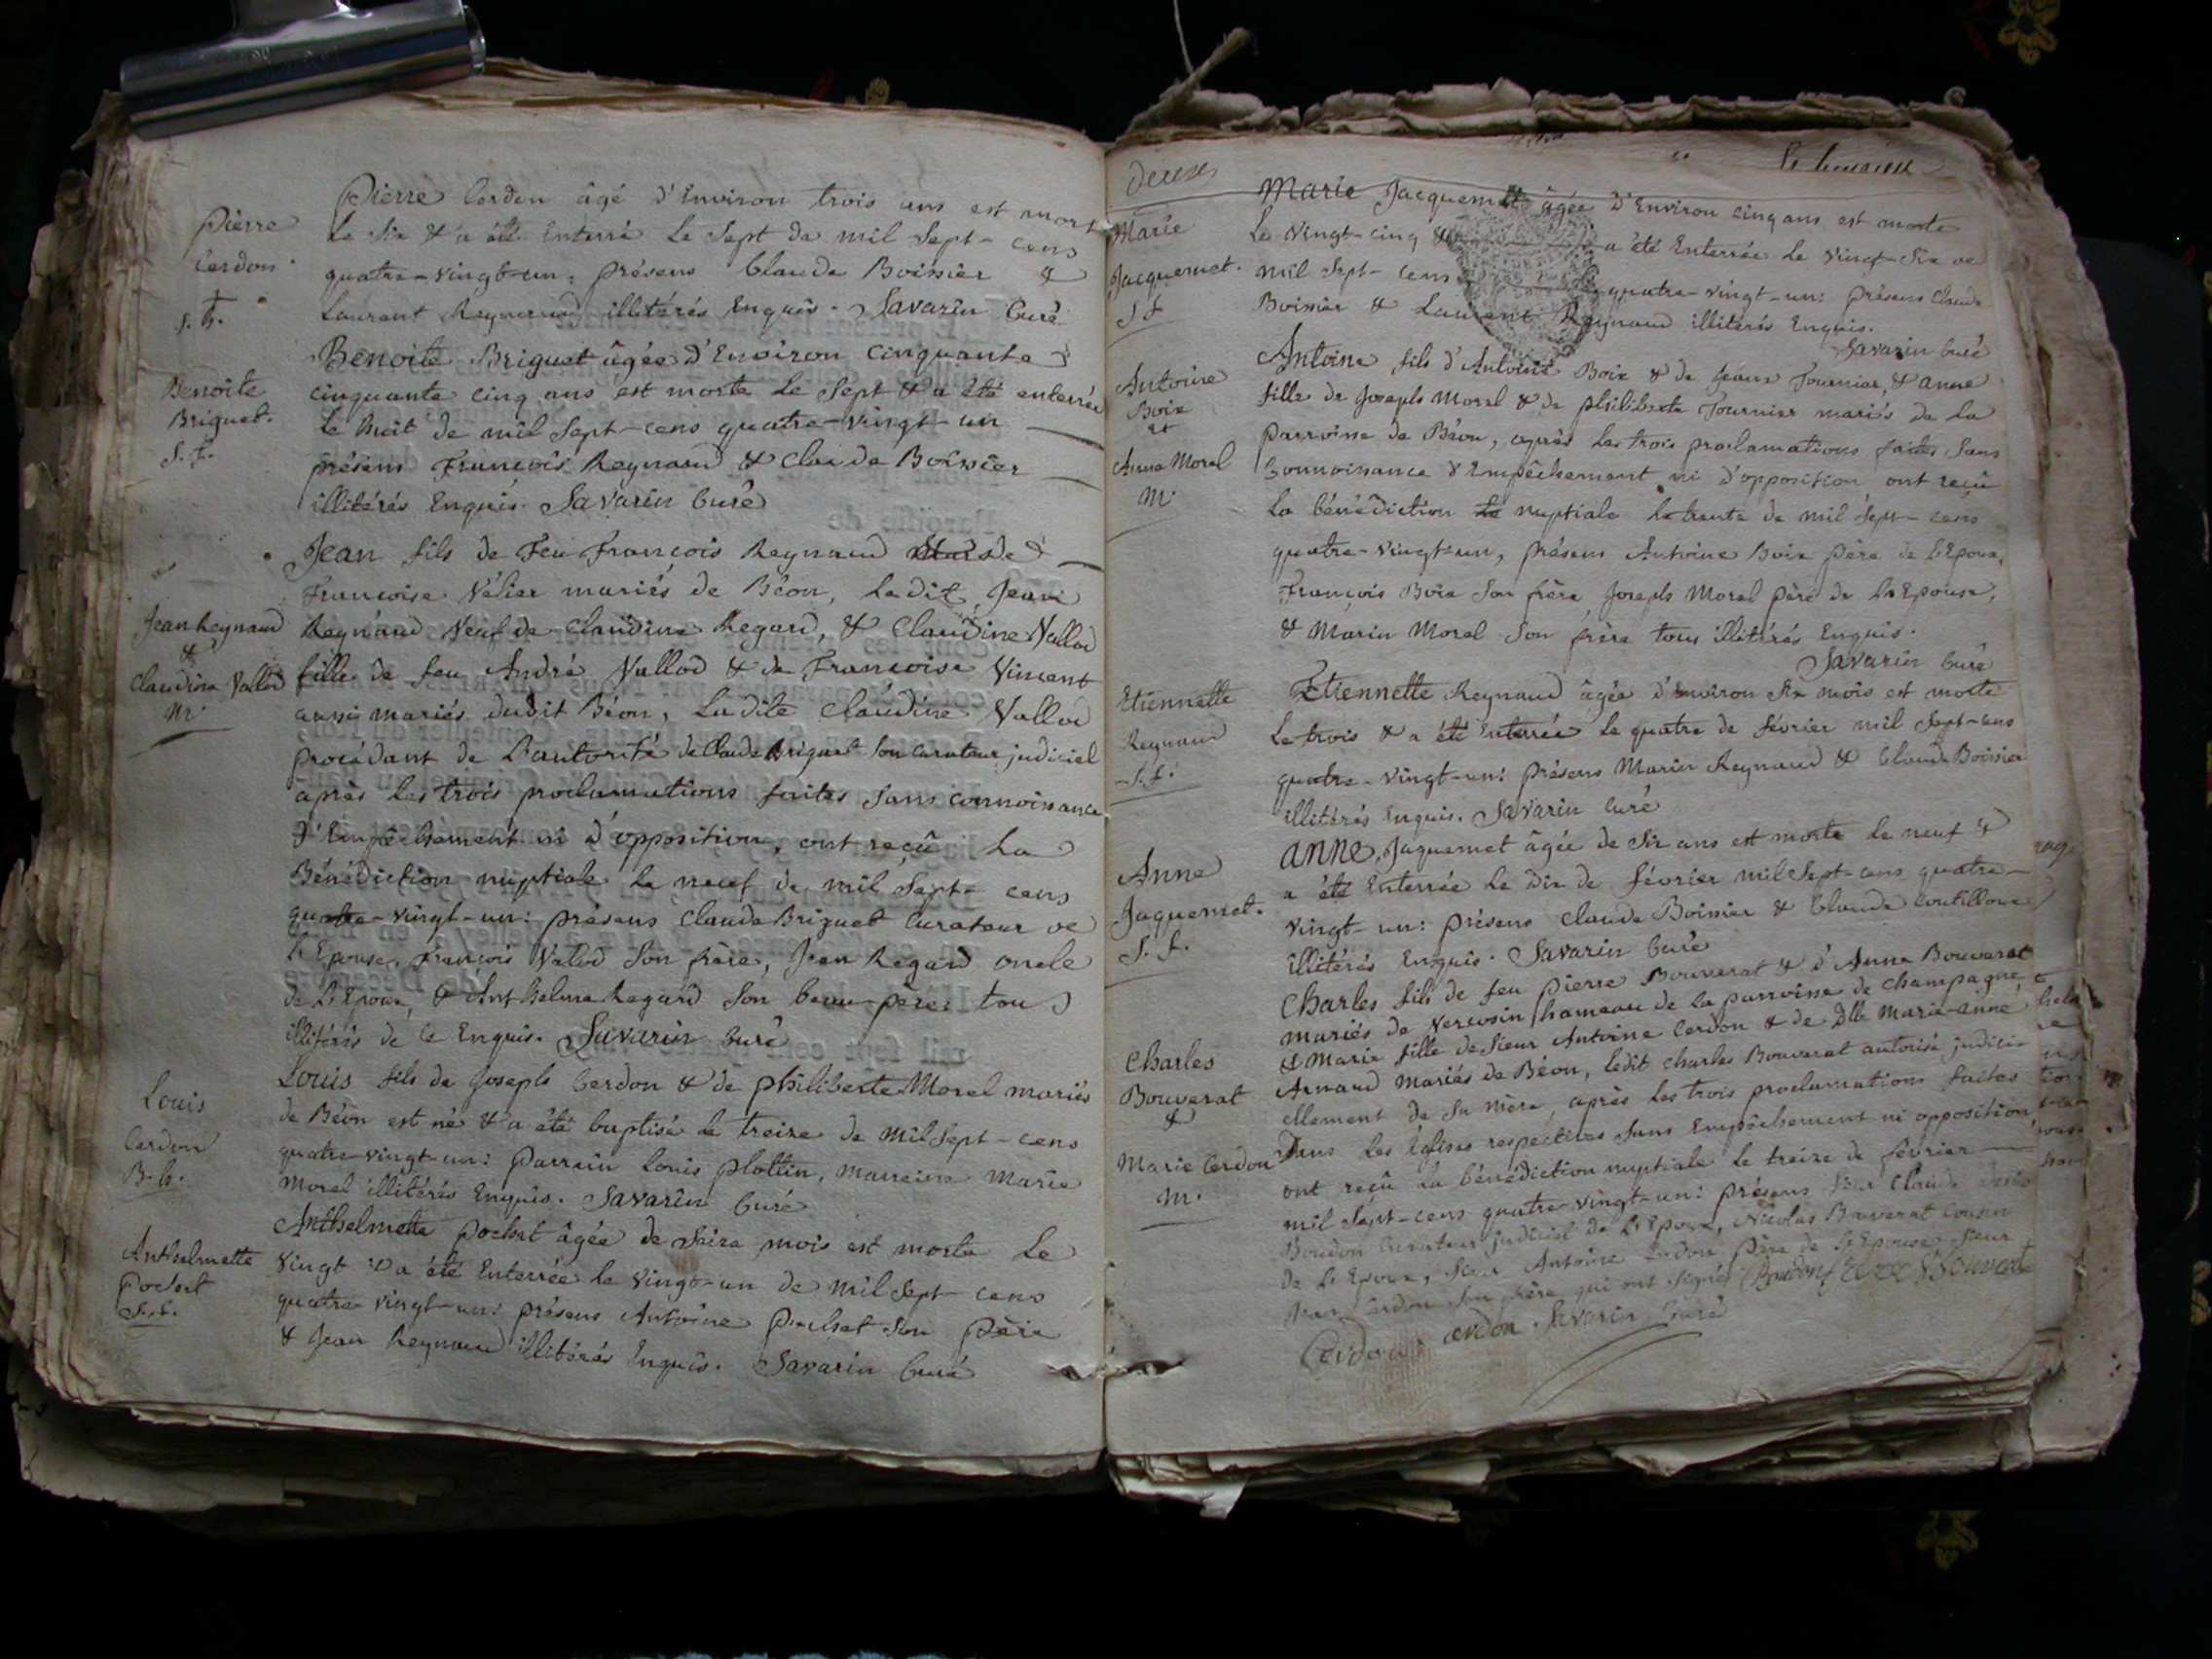 Pierre Cerdon âgé d'Environ trois ans est mort
le Six & a été Enterré le Sept de mil Sept-cens
quatre-vingt-un: présens Claude Boissier &
Laurent Reynaud illitérés Enquis. Savarin Curé
Pierre
Cerdon
S.
Benoite Briguet âgée d'Environ Cinquante
cinquante cinq ans est morte le Sept & a été enterrée
le huit de mil Sept-cens quatre-vingt-un
présens François Reynaud & Claude Boissier
illitérés Enquis. Savarin Curé
Benoite
Briguet.
S. f.
Jean fils de Feu François Reynaud & de
Françoise Vélier mariés de Béon, Ledit Jean
Reynaud Veuf de Claudine Regard, & Claudine Vallod
fille de feu André Vallod & de Françoise Vincent
aussi mariés dudit Béon, Ladite Claudine Vallod
procédant de L'autorité de Claude Briguet Son curateur judiciel
après les trois proclamations faites Sans connoissance
d'Empêchement ni d'opposition, ont reçû La
Bénédiction nuptiale le neuf de mil Sept-cens
quatre-vingt-un: présens Claude Briguet Curateur de
L'Epouse, François Valod Son frère, Jean Regard oncle
de L'Epoux, & Anthelme Regard Son beau-père tous
illitérés de ce Enquis. Savarin Curé
Jean Reynaud
&
Claudine Vallod
m.
Louis fils de Joseph Cerdon & de Philiberte Morel mariés
de Béon est né & a été baptisé le treize de Mil Sept-cens
quatre-vingt-un: Parrain Louis Plottin, marreine Marie
Morel illitérés Enquis. Savarin Curé
Louis
Cerdon
B. h.
Anthelmette Pochet âgée de Seize mois est morte Le
Vingt & a été Enterrée le vingt-un de mil Sept-cens
quatre-vingt-un: présens Antoine Pochet Son Père
& Jean Reynaud illitérés Enquis. Savarin Curé
Anthelmette
Pochet
S. f.
deux
Marie Jacquemet âgée d'Environ cinq ans est morte
Le Vingt-cinq & a été Enterrée le Vingt-Six de
mil Sept-cens quatre-vingt-un: présens Claude
Boissier & Laurent Reynaud illitérés Enquis.
Savarin Curé
Marie
Jacquemet.
S f
Antoine fils d'Antoine Boix & de Jeanne Fournier, & anne
fille de Joseph Morel & de Philiberte Fournier mariés de La
parroisse de Béon, après les trois proclamations faites Sans
Connoissance d'Empêchement ni d'opposition ont reçû
La bénédiction nuptiale le trente de mil Sept-cens
quatre-vingt-un, présens Antoine Boix père de L'Epoux,
François Boix Son frère, Joseph Morel père de L'Epouse,
& Marin Morel Son frère tous illitérés Enquis.
Savarin Curé
Antoine
Boix
et
Anne Morel
m.
Etiennette Reynaud âgée d'Environ Six mois est morte
Le trois & a été Enterrée le quatre de février mil Sept-cens
quatre-vingt-un: présens Marin Reynaud & Claude Boissier
illitérés Enquis. Savarin Curé
Etiennette
Reynaud
S. f.
Anne Jaquemet âgée de Six ans est morte le neuf &
a été Enterrée Le dix de février mil Sept-cens quatre-
vingt-un: présens Claude Boissier & Claude
illitérés Enquis. Savarin Curé
Anne
Jaquemet.
S. f.
Charles fils de feu Pierre Bouverat & d'Anne Bouverat
mariés de Vercosin hameau de La parroisse de Champagne,
& Marie fille de Sieur Antoine Cerdon & de Dlle Marie-anne
Arnaud Mariés de Béon, Ledit Charles Bouverat autorisé judici-
ellement de Sa mère, après les trois proclamations faites
Dans Les Eglises respectives Sans Empêchement ni opposition
ont reçû La bénédiction nuptiale Le treize de février
mil Sept-cens quatre-vingt-un: présens Sieur Claude
Boudon Curateur judiciel de L'Epoux, Nicolas Bouverat Cousin
de L'Epoux, Sieur Antoine Cerdon père de L'Epouse, Sieur
Jean Cerdon Son frère qui ont Signés Boudon Bouverat
Cerdon Cerdon Savarin Curé
Charles
Bouverat
&
Marie Cerdon
m.